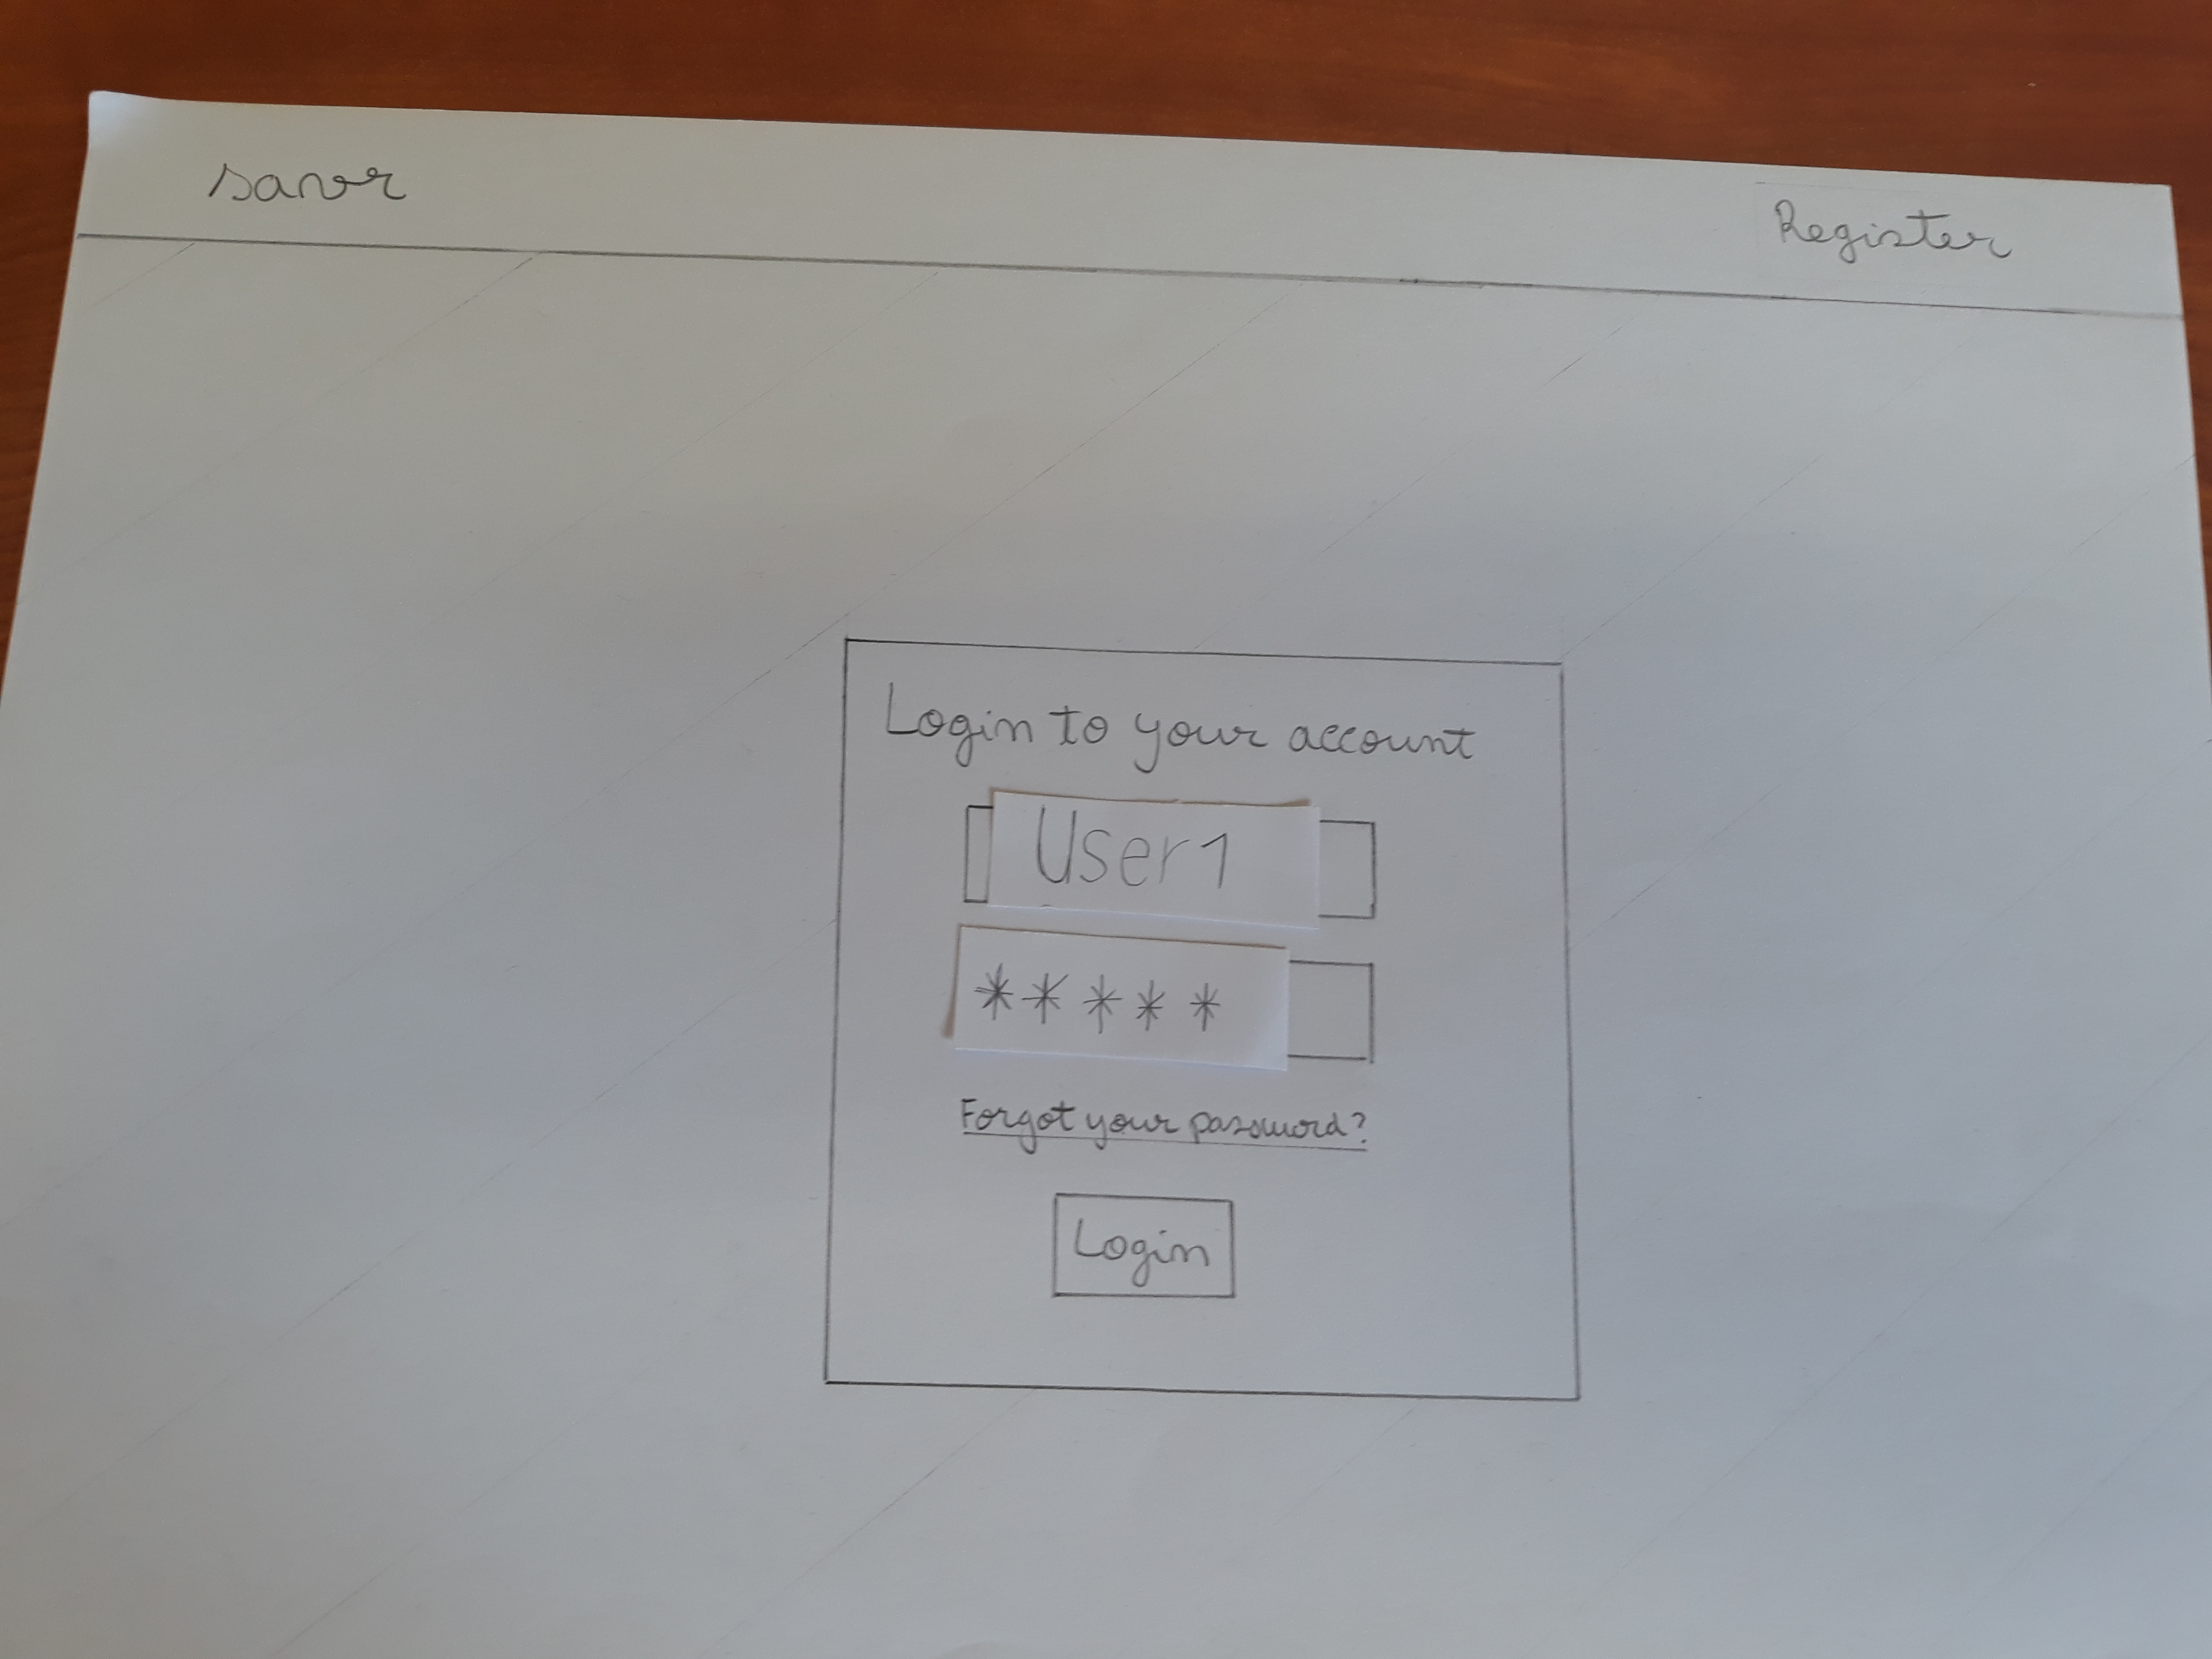 Saver
Register
Login to your account
User1
*****
Forgot your password?
Login